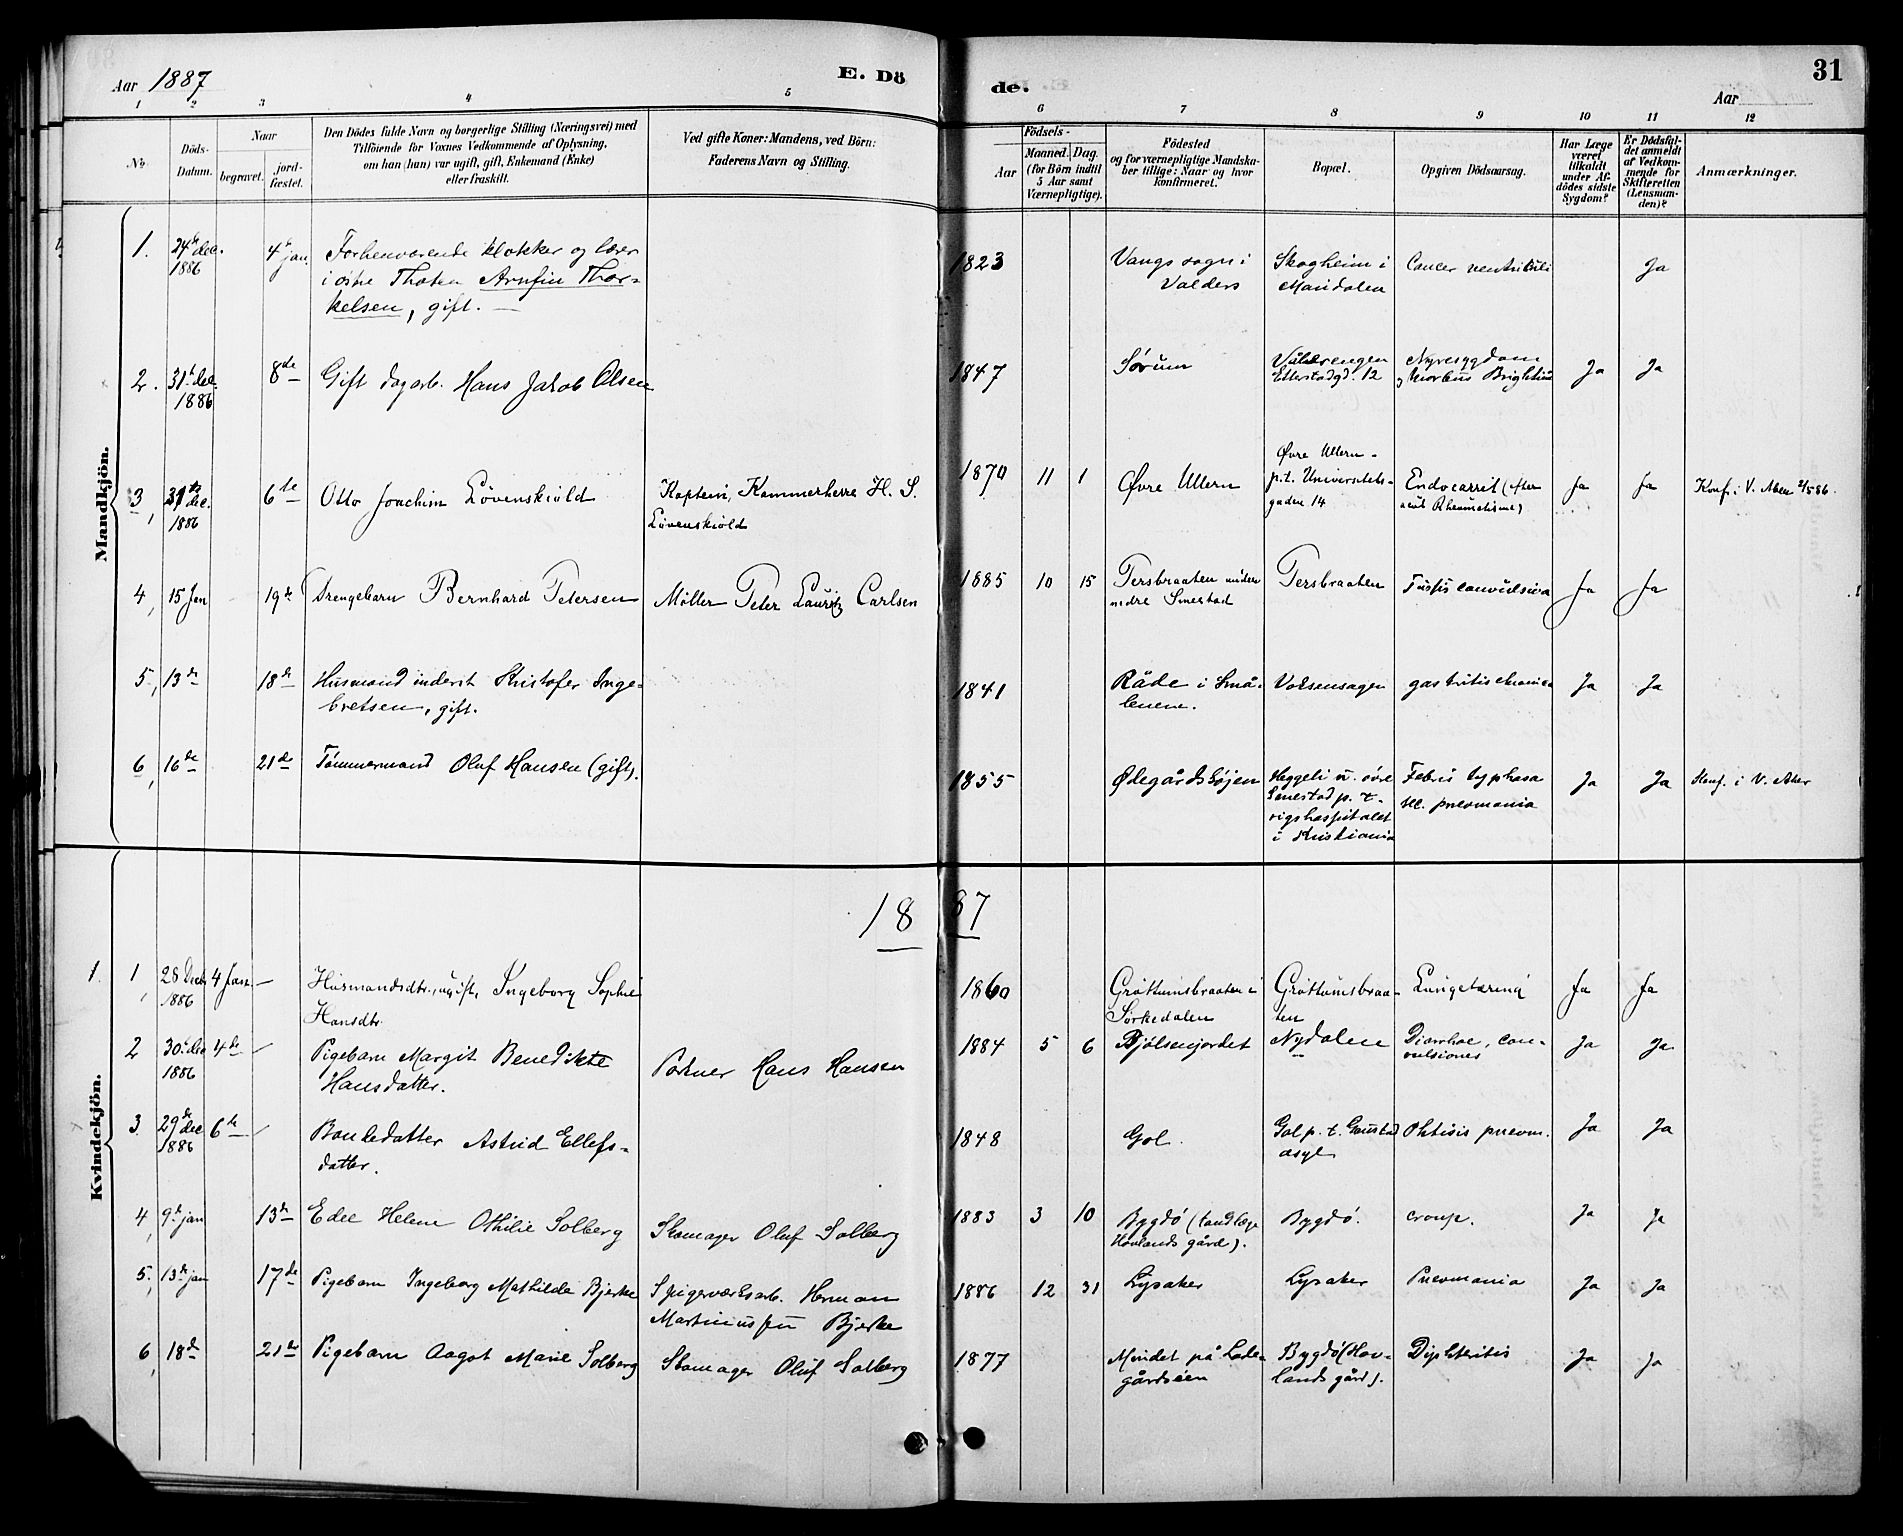 Aar 1887
E. Dö
de.
Aar
31
1
2
3
4
5
6
7
8
9
10
11
12
No.
Döds-
Datum.
Naar
begravet.
jord-
fæstet.
Den Dödes fulde Navn og borgerlige Stilling (Næringsvei) med
Tilföiende for Voxnes Vedkommende af Oplysning,
om han (hun) var ugift, gift, Enkemand (Enke)
eller fraskilt.
Ved gifte Koner: Mandens, ved Börn:
Faderens Navn og Stilling.
Födsels-
Aar
Maaned. Dag.
(for Börn indtil
5 Aar samt
Værnepligtige).
Födested
og for værnepligtige Mandska-
ber tillige: Naar og hvor
konfirmeret.
Bopæl.
Opgiven Dödsaarsag.
Har Læge
været
tilkaldt
under Af-
dödes sidste
Sygdom?
Er Dödsfal-
det anmeldt
af Vedkom-
mende for
Skifteretten
(Lensman-
den)?
Anmærkninger.
Mandkjön.
1. 24de dec. 1886 4de jan. Forhenværende klokker og lærer
i østre Thoten Arnfin Thor-
kelsen, gift. —
1823 Vangs sogn i
Valders
Skogheim i
Maridalen
Cancer ventriculi Ja
2. 31te dec. 1886 8de Gift dagarb. Hans Jakob Olsen
1847 Sørum
Vålerengen
Etterstadgd. 12
Nyresygdom
Morbus Brightii
Ja Ja
3, 31te dec. 1886 6te Otto Joachim Løvenskiold
Kaptein, Kammerherre H. S.
Løvenskiold
1870 11 1 Øvre Ullern
Øvre Ullern -
p.t. Universitets-
gaden 14
Endocarrit (efter
acut Rheumatisme)
Ja Ja Konf. i V. Aker 2/5 86.
4, 15 Jan 19de Drengebarn Bernhard Petersen
Møller Peter Lauritz Carlsen
1885 10 15 Tersbraaten under
nedre Smestad
Tersbraaten
Tussis convulsiva
Ja Ja
5, 13de 18de Husmand inderst Kristofer Inge-
bretsen, gift.
1841 Råde i Små-
lenene.
Voksenaagen
gastritis chronica
Ja Ja
6, 16de 21de Tømmermand Oluf Hansen (gift).
1855 Ødegårdshøjen
Heggeli u. øvre
Smestad p. t.
rigshospitalet
i Kristiania
Febris typhosa
sec. pneumonia
Ja Ja Konf. i V. Aker
1887
Kvindekjön.
1.
1, 28 Decb. 1886 4 Jan. — Husmandsdtr., ugift, Ingeborg Sophie
Hansdtr.
1860 Grøttumsbraaten i
Sørkedalen
Grøttumsbraa-
ten
Lungetæring
Ja Ja
2 30te dec 1886 4de Pigebarn Margit Benedikte
Hansdatter.
Portner Hans Hansen
1884 5 6 Bjølsenjordet
Nydalen
Diarrhoe, con-
vulsiones
Ja Ja
3. 29de dec 1886 6te Bondedatter Astrid Ellefs-
datter.
1848 Gol.
Gol p. t. Gaustad
asyl
Phtisis pneum.
Ja Ja
4, 9de jan 13de Edee Helene Othilie Solberg
Skomager Oluf Solberg
1883 3 10 Bygdø (tandlæge
Hovlands gård).
Bygdø.
croup.
Ja Ja
5, 13de jan 17de Pigebarn Ingeborg Mathilde Bjerke
Spigerværksarb. Herman
Martiniussen Bjerke
1886 12 31 Lysaker
Lysaker
Pneumonia
Ja Ja
6, 18de 21de Pigebarn Aagot Marie Solberg
Skomager Oluf Solberg
1877 Mindet på Lade-
gårdsøen
Bygdø (Hov-
lands gård).
Diphteritis
Ja Ja